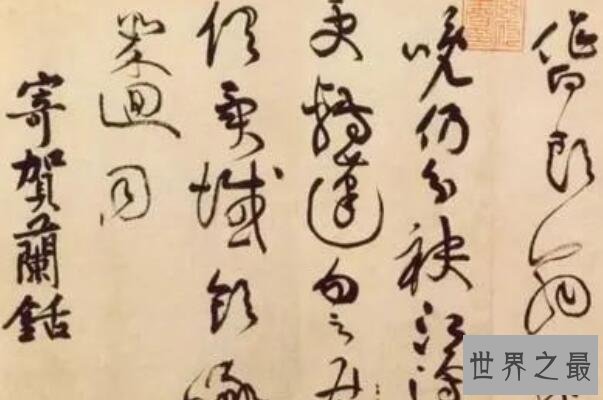 作白頭翁
晚仍分袂江邊
更轉蓬勿云
俱異域飲啄
幾迴同
寄賀蘭銛
世界之最